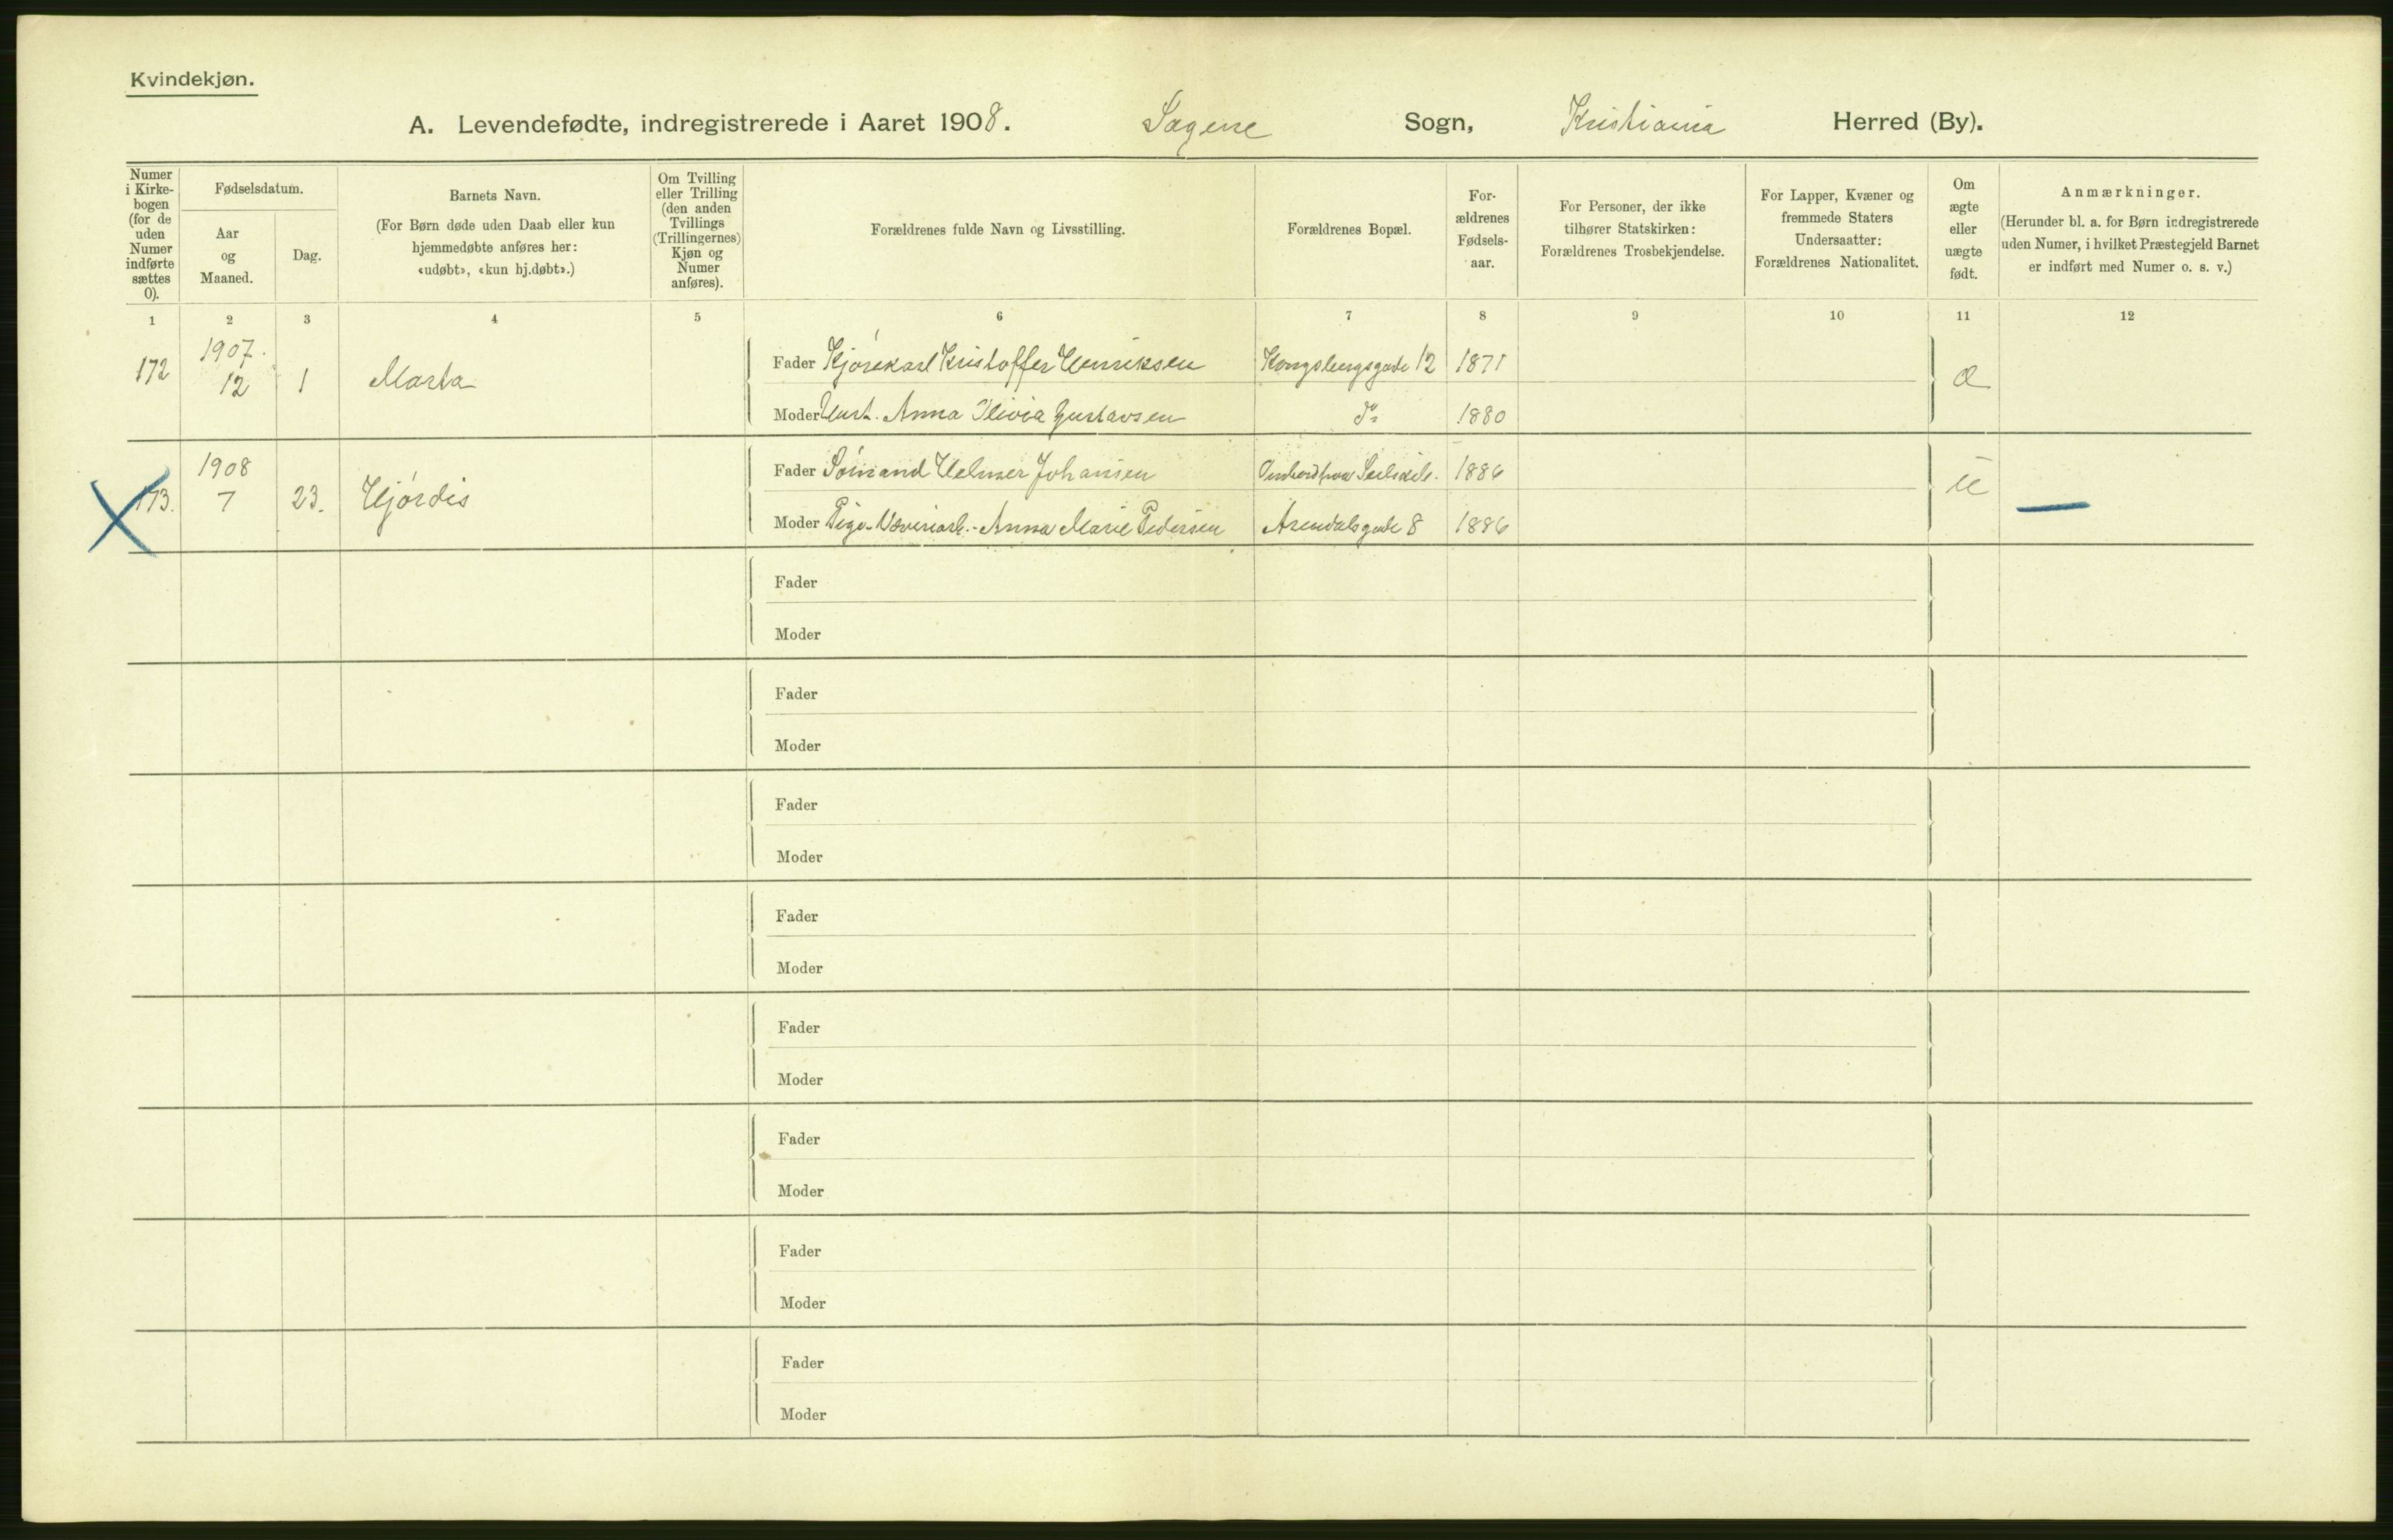 Kvindekjøn.
A. Levendefødte, indregistrerede i Aaret 1908. Sagene Sogn, Kristiania Herred (By).
Numer i Kirke-bogen (for de uden Numer indførte sættes 0).
Fødselsdatum.
Aar og Maaned.
Dag.
Barnets Navn.
(For Børn døde uden Daab eller kun
hjemmedøbte anføres her:
«udøbt», «kun hj.døbt».)
Om Tvilling
eller Trilling
(den anden
Tvillings
(Trillingernes)
Kjøn og
Numer
anføres).
Forældrenes fulde Navn og Livsstilling.
Forældrenes Bopæl.
For-
ældrenes
Fødsels-
aar.
For Personer, der ikke
tilhører Statskirken:
Forældrenes Trosbekjendelse.
For Lapper, Kvæner og
fremmede Staters
Undersaatter:
Forældrenes Nationalitet.
Om
ægte
eller
uægte
født.
Anmærkninger.
(Herunder bl. a. for Børn indregistrerede
uden Numer, i hvilket Præstegjeld Barnet
er indført med Numer o. s. v.)
1 2 3 4 5 6 7 8 9 10 11 12
172 1907. 12 1 Marta
Fader Kjørekarl Kristoffer Henriksen Kongsbergsgade 12 1871
Moder Hust. Anna Olivia Gustavsen do 1880
æ
173. 1908 7 23. Hjørdis
Fader Sømand Helmer Johansen Ombord paa 1886
Moder Pige Anna Marie Pedersen Arendalsgade 8 1886
u
Fader
Moder
Fader
Moder
Fader
Moder
Fader
Moder
Fader
Moder
Fader
Moder
Fader
Moder
Fader
Moder